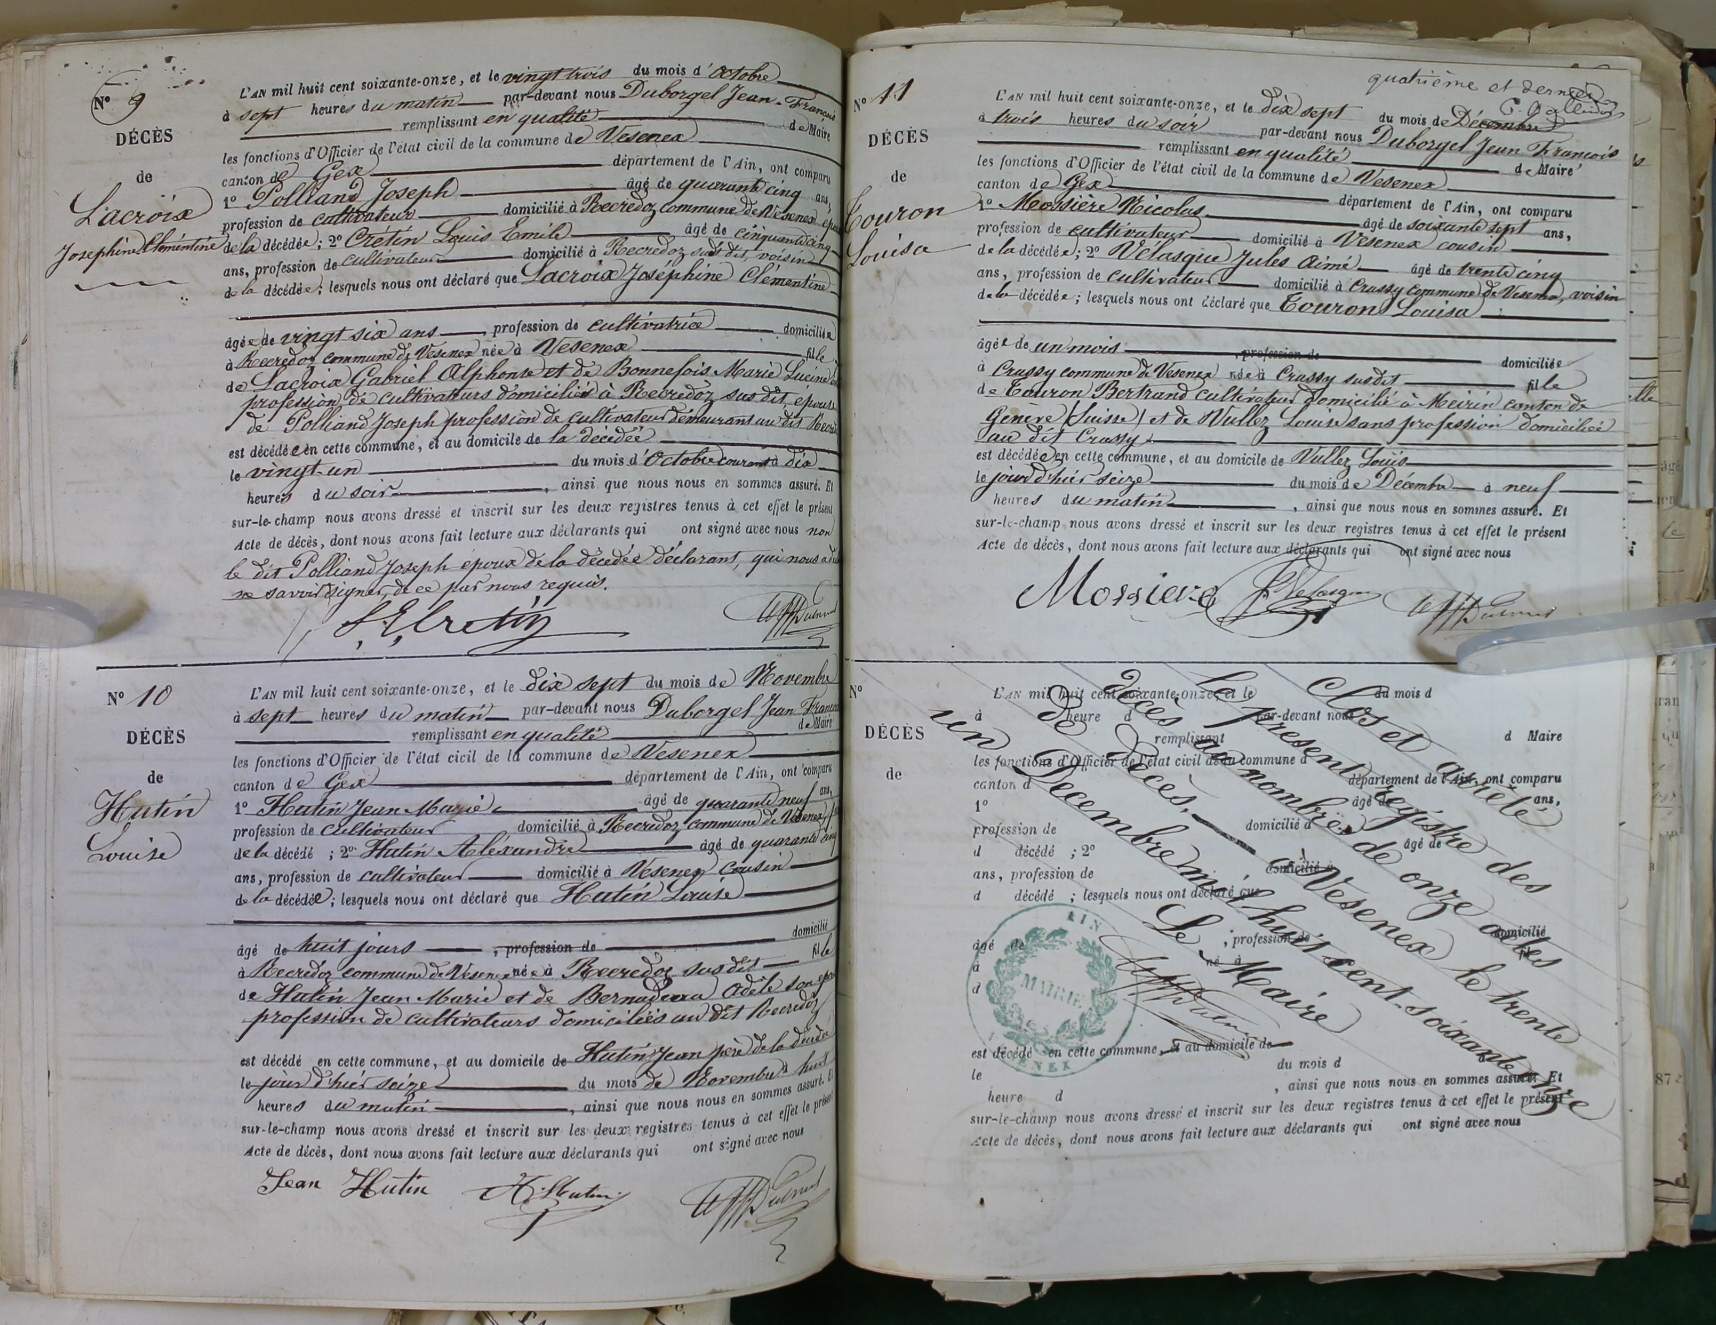 N° 9
DÉCÈS
de
Lacroix
Joséphine Clémentine
L'AN mil huit cent soixante-onze, et le vingt trois du mois d'Octobre
à sept heures du matin par-devant nous Duborgel Jean-François
remplissant en qualité de Maire
les fonctions d'Officier de l'état civil de la commune de Vesenex
canton de Gex département de l'Ain, ont comparu
1° Polliand Joseph âgé de quarante cinq ans,
profession de cultivateur domicilié à Recredoz commune de Vesenex époux
de la décédée ; 2° Crétin Louis Emile âgé de cinquante cinq
ans, profession de cultivateur domicilié à Recredoz sus dit, voisin
de la décédée ; lesquels nous ont déclaré que Lacroix Joséphine Clémentine
âgée de vingt six ans , profession de cultivatrice domiciliée
à Recredoz commune de Vesenex née à Vesenex fille
de Lacroix Gabriel Alphonse et de Bonnefois Marie Lucine
profession de cultivateurs domiciliés à Recredoz sus dit, épouse
de Polliand Joseph profession de cultivateur demeurans au dit
est décédée en cette commune, et au domicile de la décédée
le vingt un du mois d'Octobre courant à dix
heures du soir , ainsi que nous nous en sommes assuré. Et
sur-le-champ nous avons dressé et inscrit sur les deux registres tenus à cet effet le présent
Acte de décès, dont nous avons fait lecture aux déclarants qui ont signé avec nous non
le dit Polliand Joseph époux de la décédée déclarant, qui nous a dit
ne savoir signer, de ce par nous requis.
L. E. Cretin
N° 10
DÉCÈS
de
Hutin
Louise
L'AN mil huit cent soixante-onze, et le dix sept du mois de Novembre
à sept heures du matin par-devant nous Duborgel Jean François
remplissant en qualité de Maire
les fonctions d'Officier de l'état civil de la commune de Vesenex
canton de Gex département de l'Ain, ont comparu
1° Hutin Jean Marie âgé de quarante neuf ans,
profession de cultivateur domicilié à Recredoz commune de Vesenex
de la décédé ; 2° Hutin Alexandre âgé de quarante
ans, profession de cultivateur domicilié à Vesenex cousin
de la décédée ; lesquels nous ont déclaré que Hutin Louise
âgé de huit jours , profession de domicilié
à Recredoz commune de Vesenex née à Recredoz sus dit fille
de Hutin Jean Marie et de Adèle son
profession de cultivateurs domiciliés au dit Recredoz
est décédé en cette commune, et au domicile de Hutin Jean père de la décédée
le jour d'hier seize du mois de Novembre à huit
heures du matin , ainsi que nous nous en sommes assuré. Et
sur-le-champ nous avons dressé et inscrit sur les deux registres tenus à cet effet le présent
Acte de décès, dont nous avons fait lecture aux déclarants qui ont signé avec nous
Jean Hutin A. Hutin
quatrième et dernier
N° 11
DÉCÈS
de
Touron
Louisa
L'AN mil huit cent soixante-onze, et le dix sept du mois de Décembre
à trois heures du soir par-devant nous Duborgel Jean François
remplissant en qualité de Maire
les fonctions d'Officier de l'état civil de la commune de Vesenex
canton de Gex département de l'Ain, ont comparu
1° Mossière Nicolas âgé de soixante sept ans,
profession de cultivateur domicilié à Vesenex cousin
de la décédée ; 2° Vélasque Jules Aimé âgé de trente cinq
ans, profession de cultivateur domicilié à Crassy commune de Vesenex, voisin
de la décédée ; lesquels nous ont déclaré que Touron Louisa
âgée de un mois , profession de domiciliée
à Crassy commune de Vesenex née à Crassy susdit fille
de Touron Bertrand cultivateur domicilié à Meirin canton de
Geneve (Suisse) et de Vullez Louise sans profession domiciliée
au dit Crassy
est décédée en cette commune, et au domicile de Vullez Louis
le jour d'hier seize du mois de Décembre à neuf
heures du matin , ainsi que nous nous en sommes assuré. Et
sur-le-champ nous avons dressé et inscrit sur les deux registres tenus à cet effet le présent
Acte de décès, dont nous avons fait lecture aux déclarants qui ont signé avec nous
Mossiere J. Velasque
N°
DÉCÈS
de
L'AN mil huit cent soixante-onze, et le du mois d
à heure d par-devant nous
remplissant d Maire
les fonctions d'Officier de l'état civil de la commune d
canton d département de l'Ain, ont comparu
1° âgé de ans,
profession de domicilié à
d décédé ; 2° âgé de
ans, profession de domicilié à
d décédé ; lesquels nous ont déclaré que
âgé de , profession de domicilié
à né à fil
d
est décédé en cette commune, et au domicile de
le du mois d
heure d , ainsi que nous nous en sommes assuré. Et
sur-le-champ nous avons dressé et inscrit sur les deux registres tenus à cet effet le présent
Acte de décès, dont nous avons fait lecture aux déclarants qui ont signé avec nous
Clos et arrêté
le présent registre des
décès au nombre de onze actes
de décès. à Vesenex le trente
un Décembre mil huit cent soixante onze
Le Maire
AIN
MAIRIE